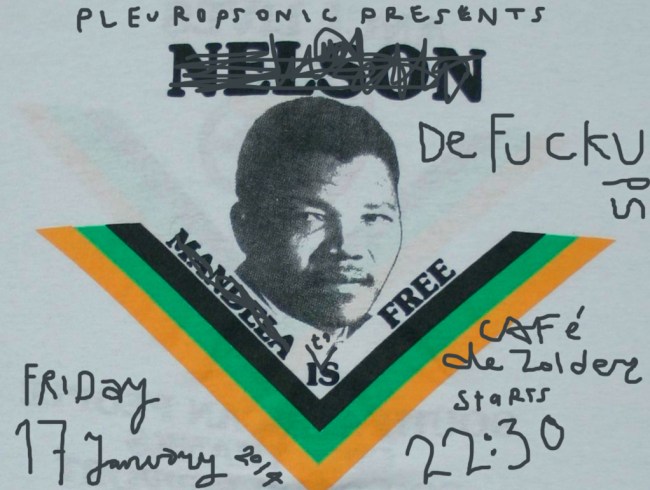 PLEUROPSONIC PRESENTS
NELSON
De FUCKU
PS
MANDELA
it's
IS
FREE
CAFé
de Zolder
STARTS
22:30
FRIDAY
17 January 2014